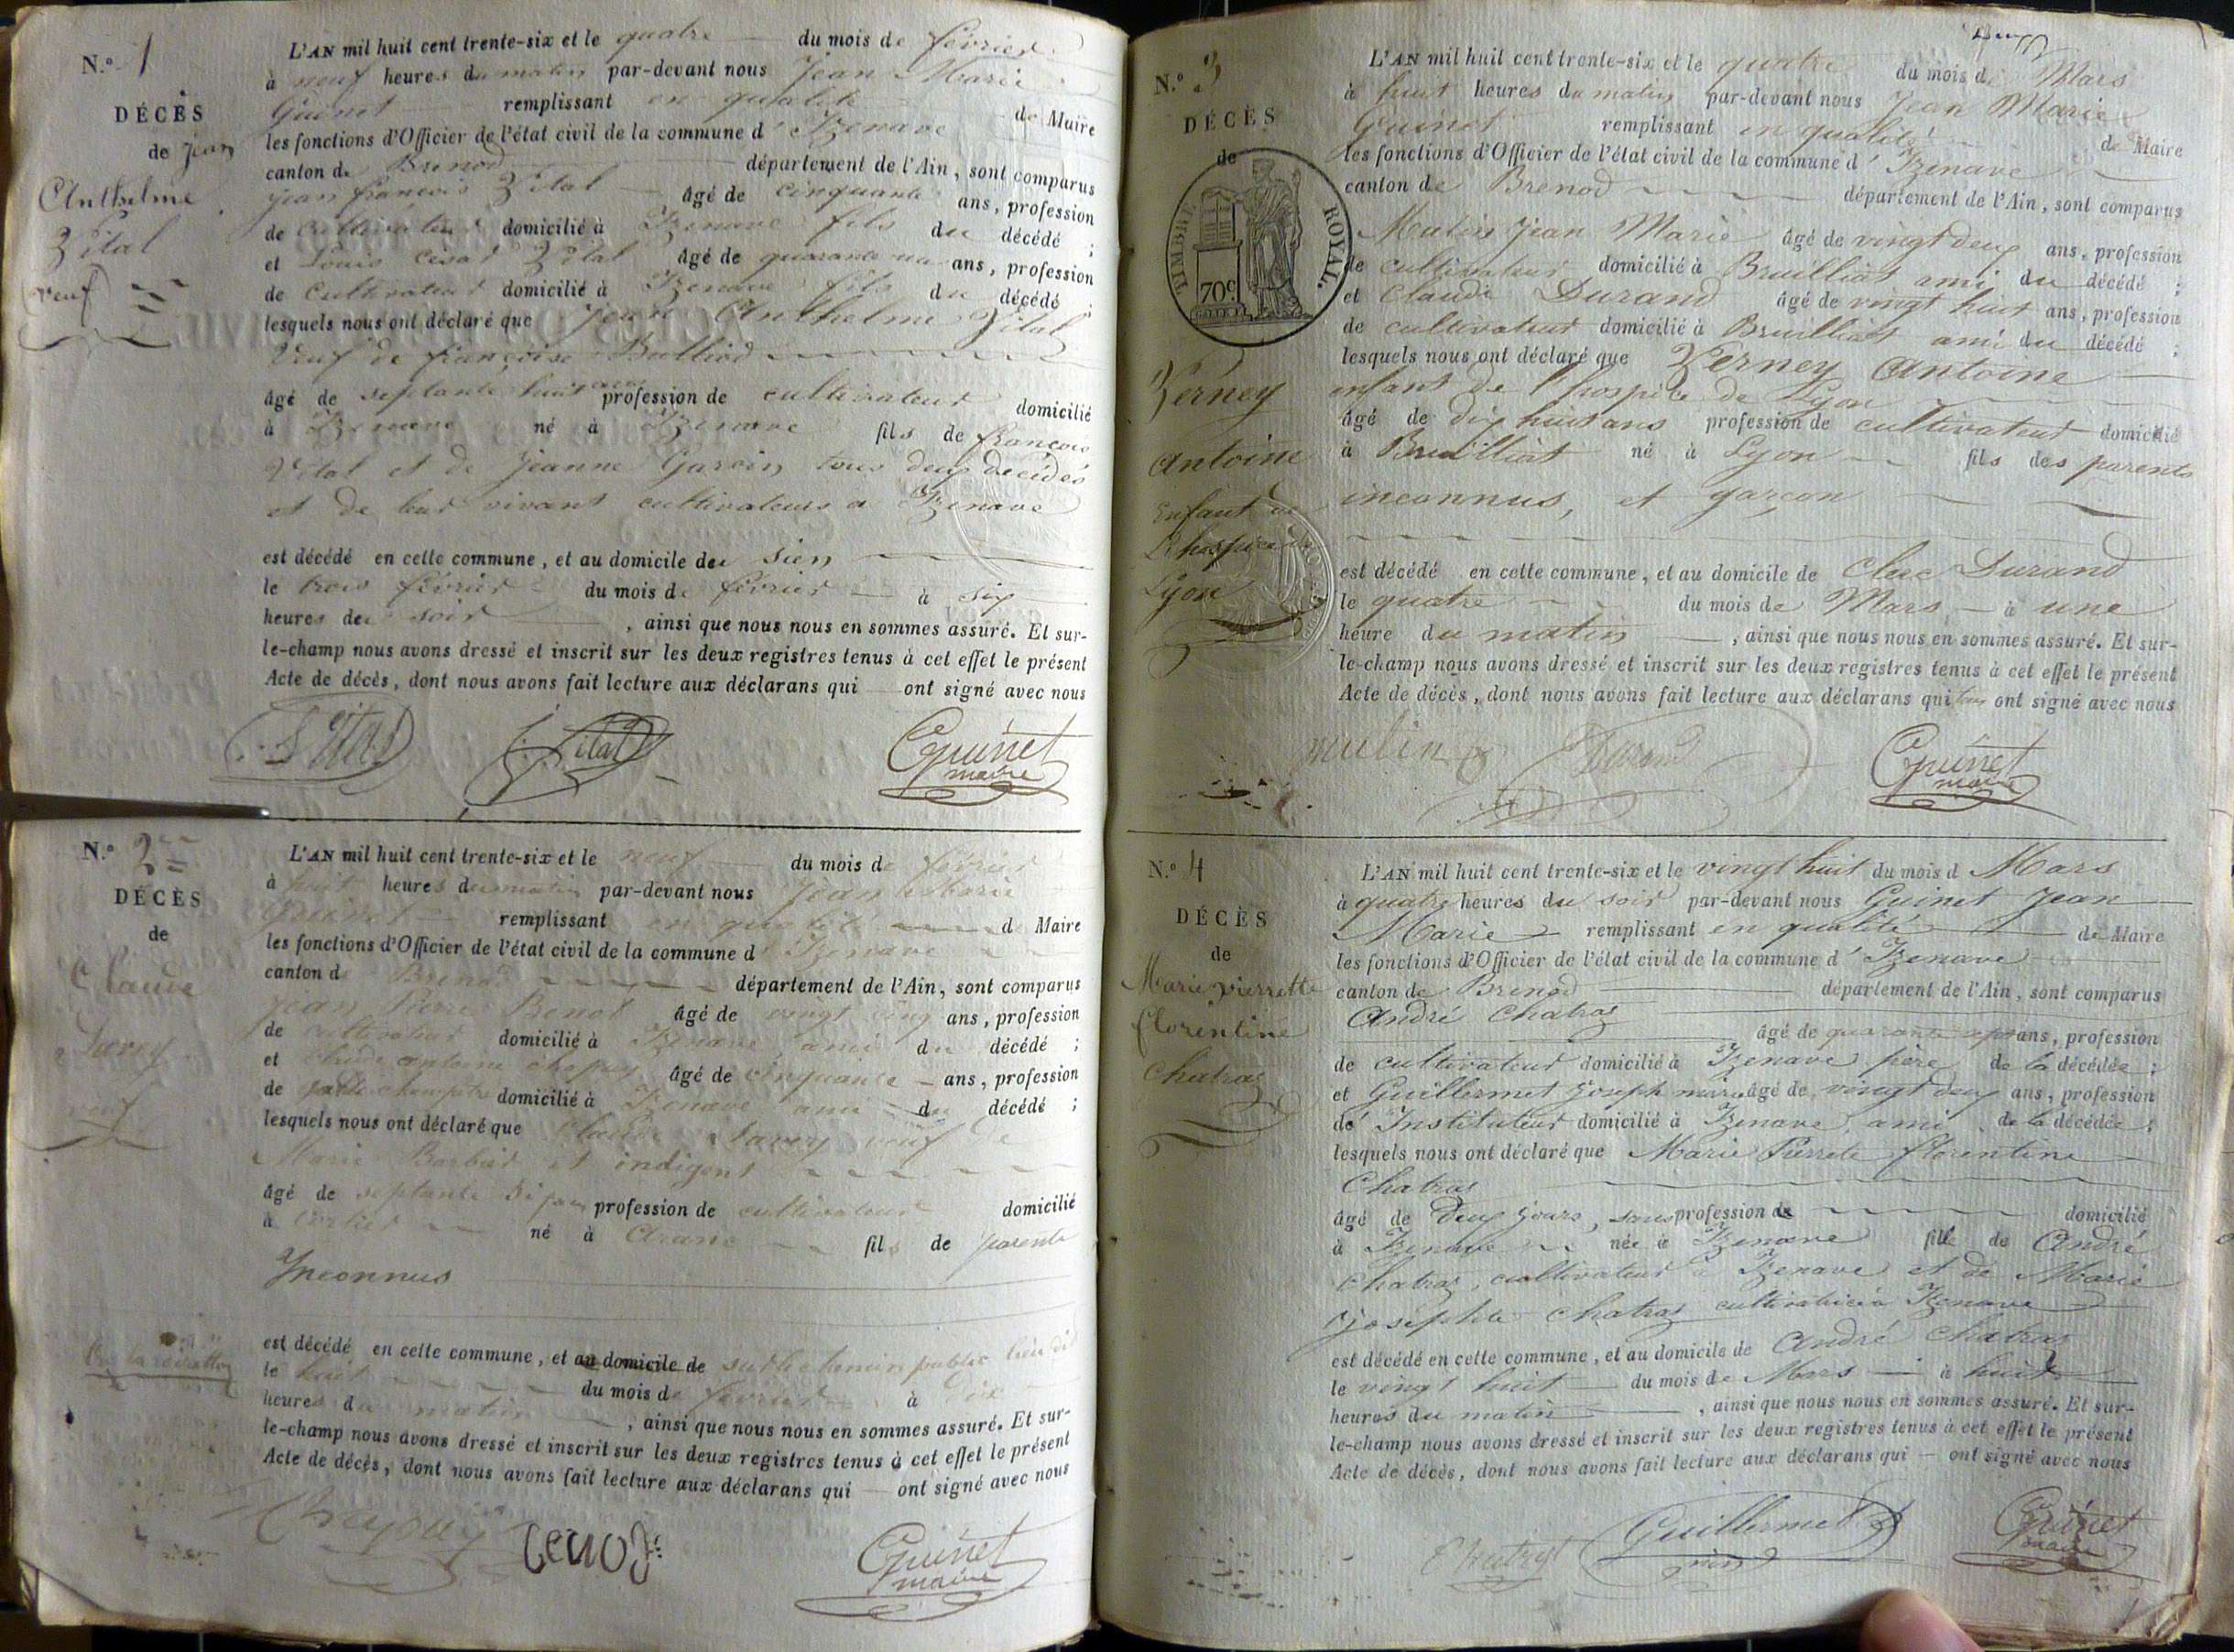 N.º 1
DÉCÈS
de Jean
Anthelme
Vital
veuf
L'AN mil huit cent trente-six et le quatre du mois de février
à neuf heures du matin par-devant nous Jean Marie
Guinet remplissant en qualité de Maire
les fonctions d'Officier de l'état civil de la commune d'Izenave
canton de Brenod département de l'Ain, sont comparus
jean françois Vital âgé de cinquante ans, profession
de cultivateur domicilié à Izenave fils du décédé ;
et Louis César Vital âgé de quarante un ans, profession
de cultivateur domicilié à Izenave fils du décédé ;
lesquels nous ont déclaré que Jean Anthelme Vital
Veuf de françoise Bulliod
âgé de septante huit ans profession de cultivateur domicilié
à Izenave né à Izenave fils de françois
Vital et de Jeanne Garvin tous deux décédés
et de leur vivant cultivateurs a Izenave
est décédé en cette commune, et au domicile de sien
le trois février du mois de février à six
heures de soir , ainsi que nous nous en sommes assuré. Et sur-
le-champ nous avons dressé et inscrit sur les deux registres tenus à cet effet le présent
Acte de décès, dont nous avons fait lecture aux déclarans qui ont signé avec nous
Vital
Vital
Guinet
maire
N.º 2
DÉCÈS
de
Claude
Savey
veuf
L'AN mil huit cent trente-six et le neuf du mois de février
à huit heures du matin par-devant nous Jean Marie
Guinet remplissant en qualité d Maire
les fonctions d'Officier de l'état civil de la commune d'Izenave
canton d Brenod département de l'Ain, sont comparus
Jean Pierre Benot âgé de vingt cinq ans, profession
de cultivateur domicilié à Izenave ami du décédé ;
et claude antoine chapuy âgé de cinquante ans, profession
de garde champêtre domicilié à Izenave ami du décédé ;
lesquels nous ont déclaré que Claude Savey veuf de
Marie Barbier et indigent
âgé de septante profession de cultivateur domicilié
à Corlier né à Aranc fils de parents
Inconnus
est décédé en cette commune, et au domicile de sur le chemin public lieu dit
le huit du mois de février à dix
heures du matin , ainsi que nous nous en sommes assuré. Et sur-
le-champ nous avons dressé et inscrit sur les deux registres tenus à cet effet le présent
Acte de décès, dont nous avons fait lecture aux déclarans qui ont signé avec nous
Chapuy
benot
Guinet
maire
N.º 3
DÉCÈS
de
TIMBRE ROYAL.
70c.
Verney
Antoine
Enfant de
L'hospice de
Lyon
L'AN mil huit cent trente-six et le quatre du mois de Mars
à huit heures du matin par-devant nous Jean Marie
Guinet remplissant en qualité de Maire
les fonctions d'Officier de l'état civil de la commune d'Izenave
canton de Brenod département de l'Ain, sont comparus
Mulin Jean Marie âgé de vingt deux ans, profession
de cultivateur domicilié à Bruilliat ami du décédé ;
et Claude Durand âgé de vingt huit ans, profession
de cultivateur domicilié à Bruilliat ami du décédé ;
lesquels nous ont déclaré que Verney Antoine
enfant de l'hospice de Lyon
âgé de dix huit ans profession de cultivateur domicilié
à Bruilliat né à Lyon fils des parents
inconnus, et garçon
est décédé en cette commune, et au domicile de Clue Durand
le quatre du mois de Mars à une
heure du matin , ainsi que nous nous en sommes assuré. Et sur-
le-champ nous avons dressé et inscrit sur les deux registres tenus à cet effet le présent
Acte de décès, dont nous avons fait lecture aux déclarans qui tous ont signé avec nous
mulin
Durand
Guinet
maire
N.º 4
DÉCÈS
de
Marie pierrette
florentine
Chatraz
L'AN mil huit cent trente-six et le vingt huit du mois d Mars
à quatre heures du soir par-devant nous Guinet Jean
Marie remplissant en qualité de Maire
les fonctions d'Officier de l'état civil de la commune d'Izenave
canton de Brenod département de l'Ain, sont comparus
André Chatraz âgé de quarante sept ans, profession
de cultivateur domicilié à Izenave père de la décédée ;
et Guillermet Joseph marie âgé de vingt deux ans, profession
de Instituteur domicilié à Izenave, ami de la décédée ;
lesquels nous ont déclaré que Marie Pierrete florentine
Chatraz
âgé de Deux jours, sans profession de domicilié
à Izenave née à Izenave fille de André
Chatraz, cultivateur à Izenave et de Marie
josephte Chatraz cultivatrice à Izenave
est décédé en cette commune, et au domicile de André Chatraz
le vingt huit du mois de Mars à huit
heures du matin , ainsi que nous nous en sommes assuré. Et sur-
le-champ nous avons dressé et inscrit sur les deux registres tenus à cet effet le présent
Acte de décès, dont nous avons fait lecture aux déclarans qui ont signé avec nous
Guillermet
Guinet
maire